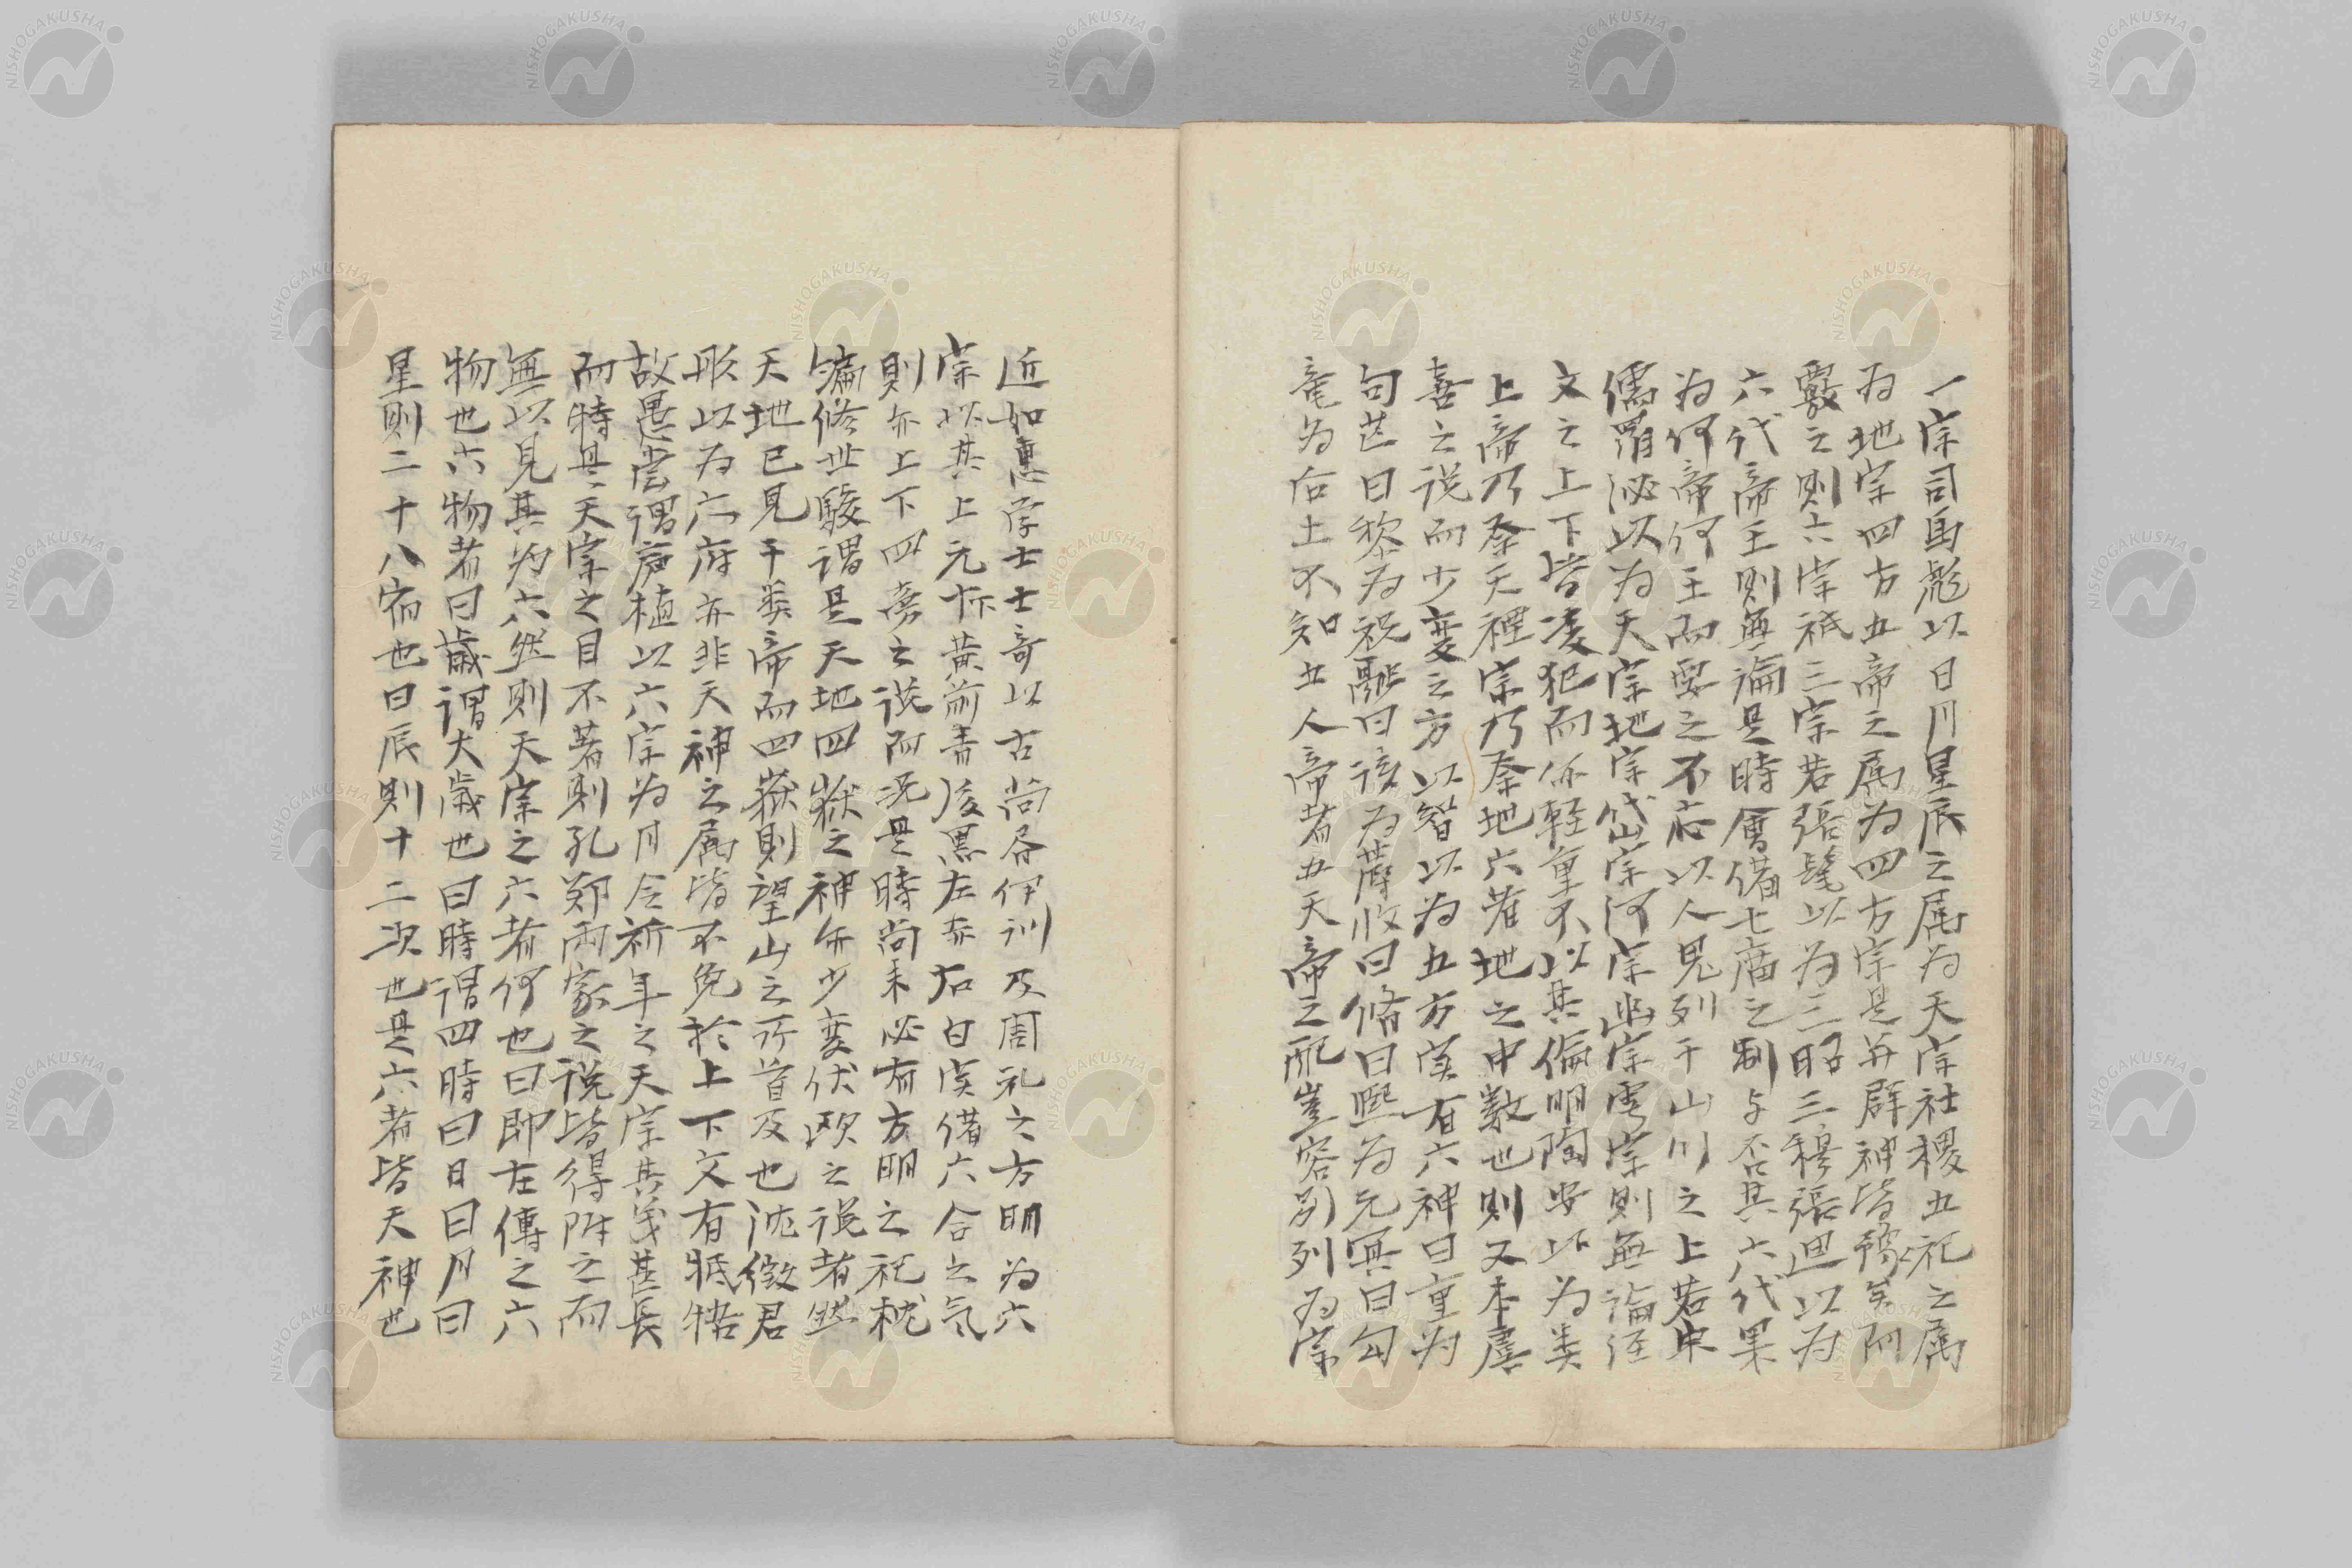 一宗司馬彪以日月星辰之属为天宗社稷五祀之属
为地宗四方五帝之属为四方宗是並群神皆預矣而
覈之則六宗祇三宗若張髦以为三昭三穆張迪以为
六代帝王則無論是時曾備七庙之制与否其六代果
为何帝何王而要之不応以人鬼列于山川之上若宋
儒羅泌以为天宗地宗岱宗河宗幽宗雩宗則無論経
文之上下皆凌犯而仍軽重不以其倫明陶安以为类
上帝乃祭天禋宗乃祭地六者地之中数也則又本虞
喜之说而少变之方以智以为五方实有六神曰重为
句芒曰黎为祝融曰該为蓐收曰脩曰熙为元冥曰句
竜为后土不知五人帝者五天帝之配豈容別列为宗
近如惠学士士奇以古尚各伊训及周礼之方明为六
宗以其上元下黄前青後黒左赤右白实備六合之気
則亦上下四旁之说而况是時尚未必有方明之祀杭
编修世駿謂是天地四嶽之神亦少变伏欧之说者然
天地已見于类帝而四嶽則望山之所首及也沈徵君
彤以为六府亦非天神之属皆不免於上下文有牴牾
故愚尝謂盧植以六宗为月令祈年之天宗其义甚長
而特其天宗之目不著則孔郑両家之说皆得附之而
無以見其为六然則天宗之六者何也曰即左傳之六
物也六物者曰歳謂大歳也曰時謂四時曰日曰月曰
星則二十八宿也曰辰則十二次也是六者皆天神也
NISHOGAKUSHA